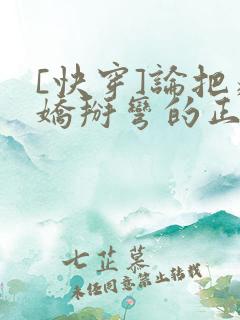 [快穿]論把
嬌掰彎的正
七芷慕
未任同意禁止转载